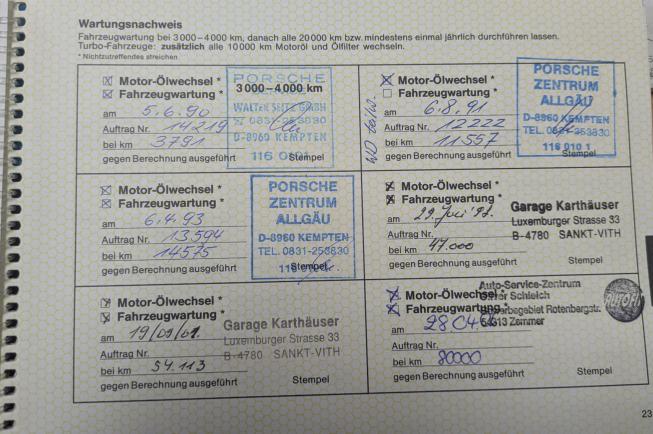 Wartungsnachweis
Fahrzeugwartung bei 3000–4000 km, danach alle 20000 km bzw. mindestens einmal jährlich durchführen lassen.
Turbo-Fahrzeuge: zusätzlich alle 10000 km Motoröl und Ölfilter wechseln.
* Nichtzutreffendes streichen
Motor-Ölwechsel *
Fahrzeugwartung *
3000–4000 km
am 5.6.90
Auftrag Nr. 14219
bei km 3791
gegen Berechnung ausgeführt
Stempel
PORSCHE
WALTER SEITZ GMBH
D-8960 KEMPTEN
Motor-Ölwechsel *
Fahrzeugwartung *
am 6.8.91
Auftrag Nr. 12222
bei km 11557
gegen Berechnung ausgeführt
Stempel
WD
PORSCHE
ZENTRUM
ALLGÄU
D-8960 KEMPTEN
TEL. 0831-253830
116 010 1
Motor-Ölwechsel *
Fahrzeugwartung *
am 6.4.93
Auftrag Nr. 13594
bei km 14575
gegen Berechnung ausgeführt
Stempel
PORSCHE
ZENTRUM
ALLGÄU
D-8960 KEMPTEN
TEL. 0831-253830
Motor-Ölwechsel *
Fahrzeugwartung *
am 29. Juli
Auftrag Nr.
bei km 47.000
gegen Berechnung ausgeführt
Stempel
Garage Karthäuser
Luxemburger Strasse 33
B-4780 SANKT-VITH
Motor-Ölwechsel *
Fahrzeugwartung *
am 19/09/01.
Auftrag Nr.
bei km 54.113
gegen Berechnung ausgeführt
Stempel
Garage Karthäuser
Luxemburger Strasse 33
B-4780 SANKT-VITH
Motor-Ölwechsel *
Fahrzeugwartung *
am 28.04
Auftrag Nr.
bei km 80000
gegen Berechnung ausgeführt
Stempel
Auto-Service-Zentrum
Schleich
Gewerbegebiet Rotenbergstr.
54313 Zemmer
23